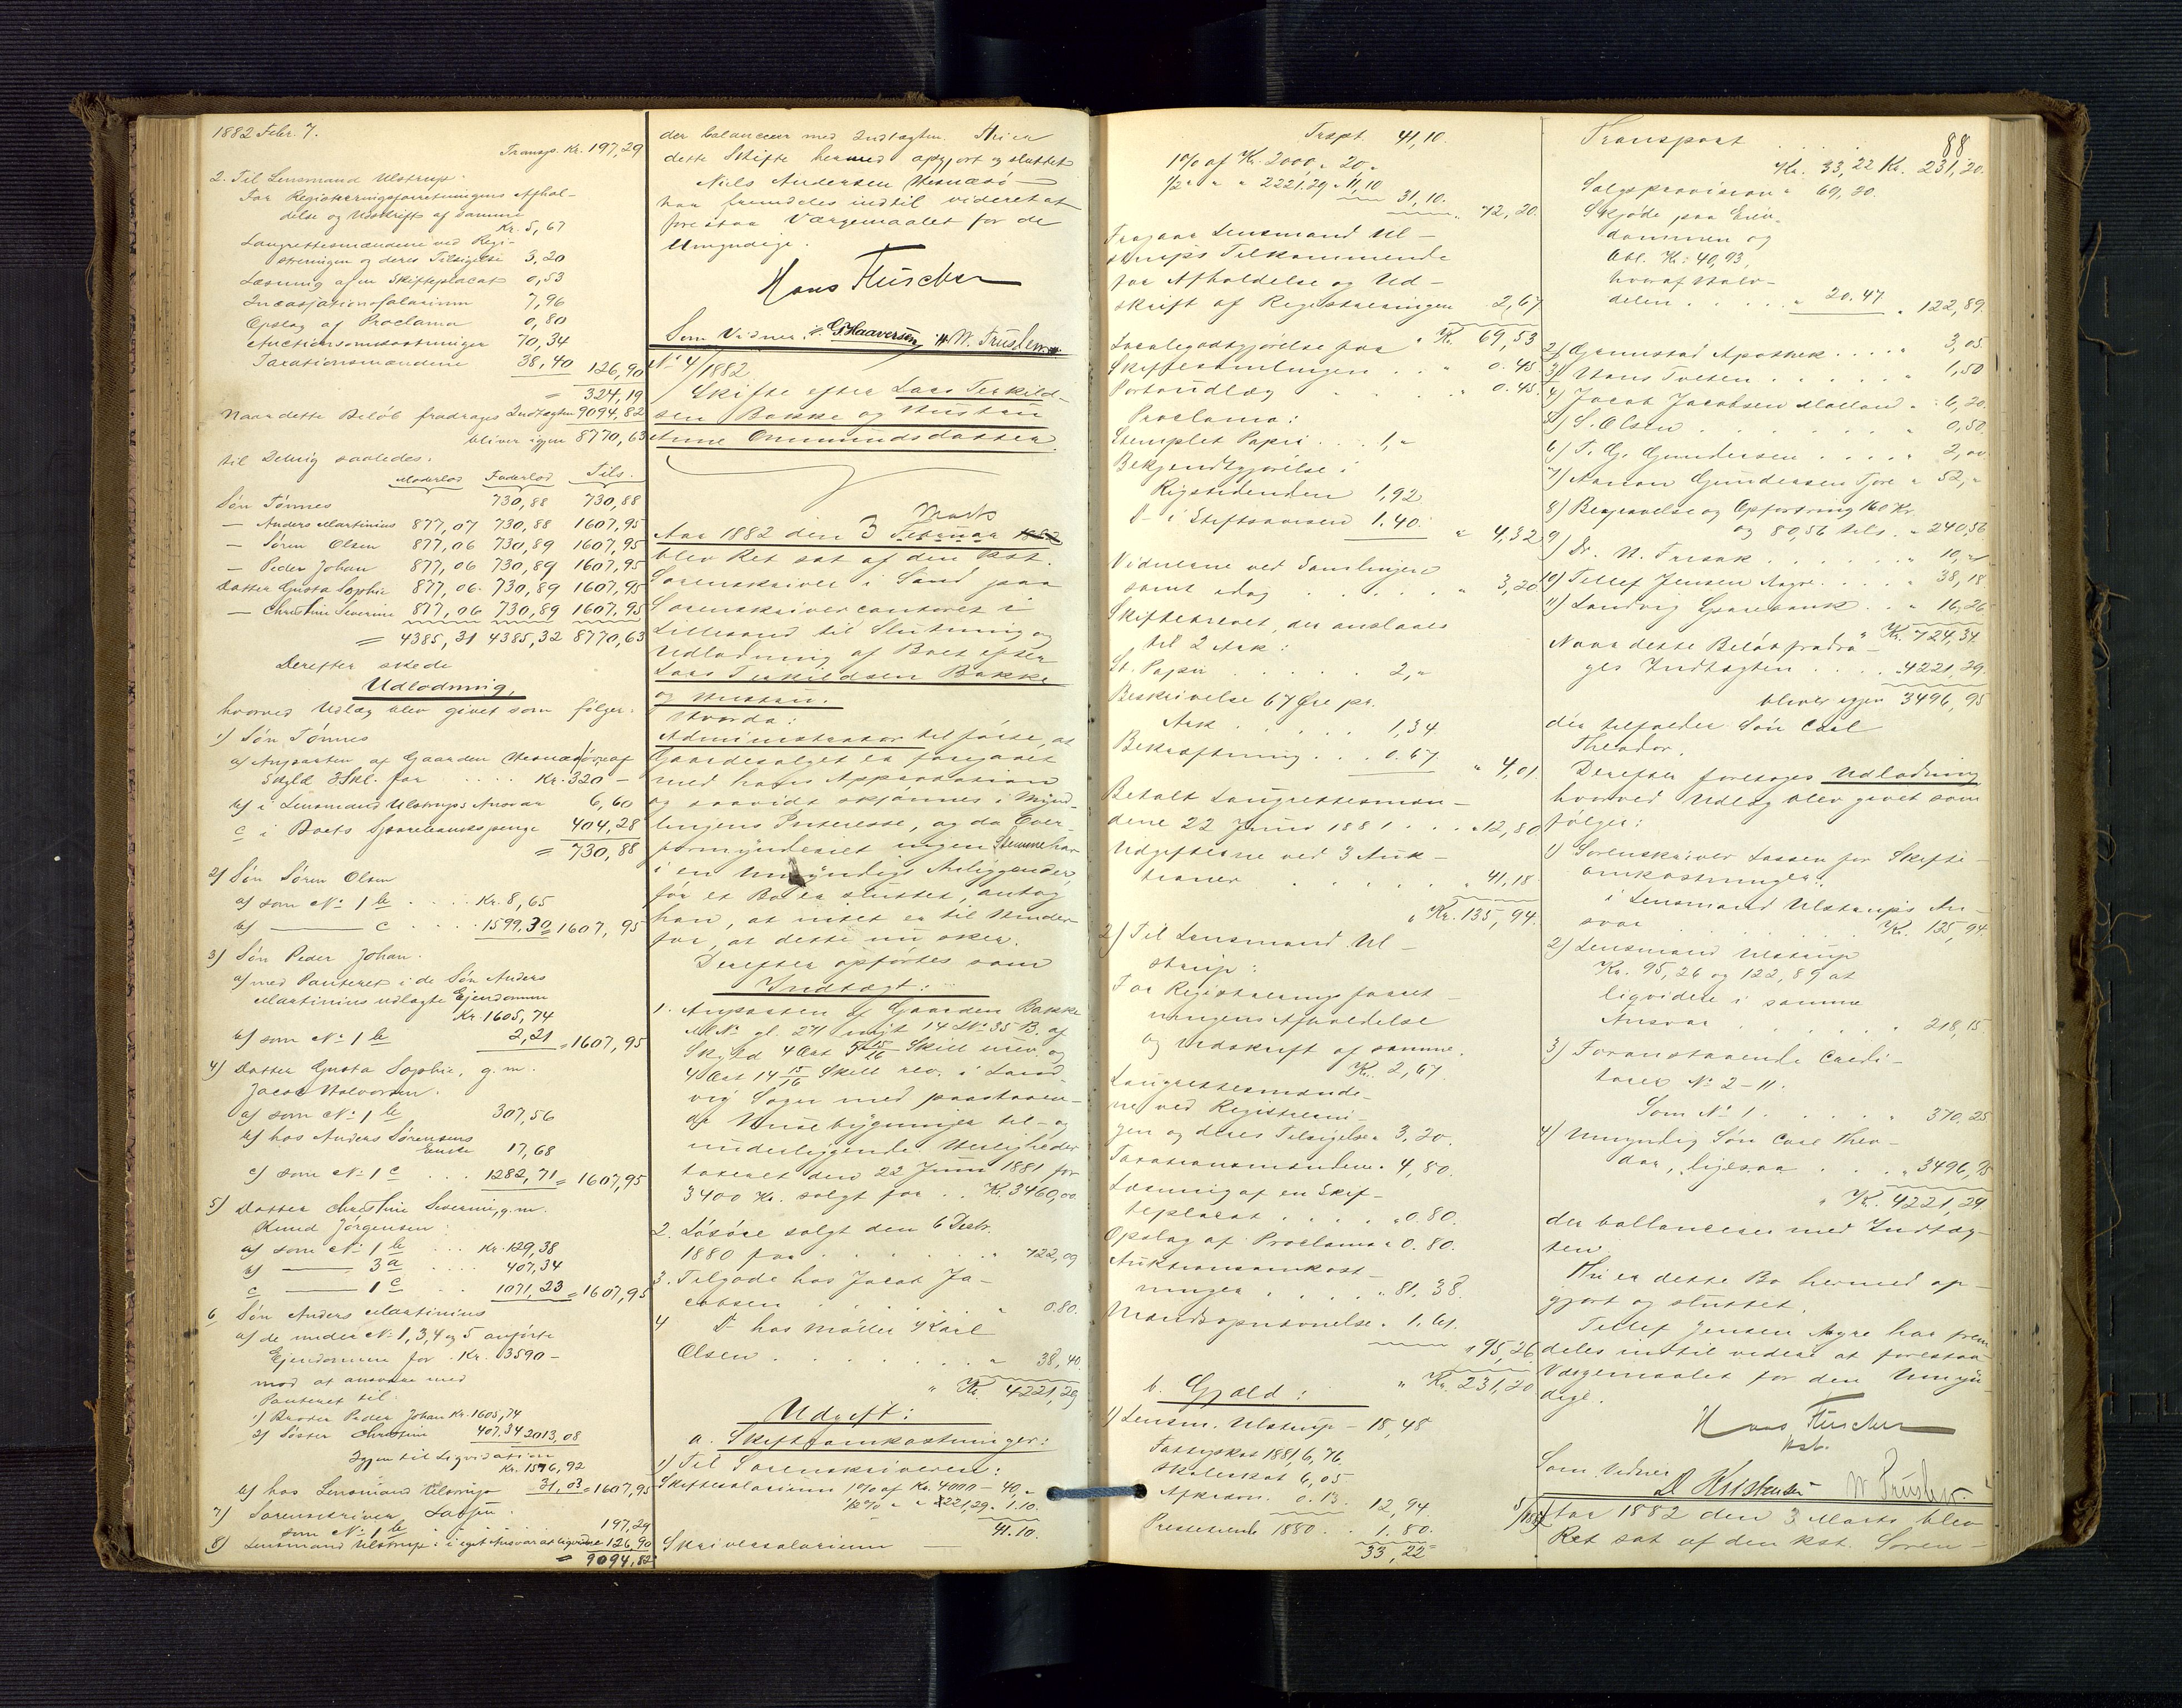 1882 Febr. 7.
Transp. Kr. 197,29
2. Til Lensmand Ulstrup.
For Registreringsforretningens Afhol-
delse og Udskrift af samme
Kr. 5,67
Laugrettesmændene ved Regi-
streringen og deres Tilsigelse 3,20
Læsning af en Skifteplacat 0,53
Incassationssalarium 7,96
Opslag af Proclama 0,80
Auctionsomkostninger 70,34
Taxationsmændene 38,40 126,90
= 324,19
Naar dette Beløb fradrages Indtægten 9094,82
bliver igjen 8770,63
til Deling saaledes.
Moderlod Faderlod Tils.
Søn Tønnes 730,88 730,88
— Anders Martinius 877,07 730,88 1607,95
— Søren Olsen 877,06 730,89 1607,95
— Peder Johan 877,06 730,89 1607,95
Datter Gusta Sophie 877,06 730,89 1607,95
— Christine Severine 877,06 730,89 1607,95
= 4385,31 4385,32 8770,63
Derefter skede
Udlodning,
hvorved Udlæg blev givet som følger.
1) Søn Tønnes
a) Anparten af Gaarden Hesnæsøen af
Skyld 3 Skl. for .... Kr. 320 —
b) i Lensmand Ulstrups Ansvar 6,60
c i Boets Sparebankspenge 404,28
= 730,88
2) Søn Søren Olsen
a) som No 1 b .... Kr. 8,65
b) ——— c .... 1599,30 1607,95
3) Søn Peder Johan.
a) med Panteret i de Søn Anders
Martinius udlagte Ejendomme
Kr. 1605,74
b) som No 1 b 2,21 = 1607,95
4) Datter Gusta Sophie, g. m.
Jacob Halvorsen.
a) som No 1 b 307,56
b) hos Anders Sørensens
Enke 17,68
c) som No 1 c ... 1282,71 = 1607,95
5) Datter Christine Severine, g. m.
Knud Jørgensen
a) som No 1 b ... Kr. 129,38
b) ——— 3 a .... 407,34
c ——— 1 c .... 1071,23 = 1607,95
6 Søn Anders Martinius
a) de under No 1, 3, 4 og 5 anførte
Ejendomme for . Kr. 3590 —
mod at ansvare med
Panteret til.
1) Broder Peder Johan Kr. 1605,74
2) Søster Christine 407,34 2013,08
Igjen til Liqvidation
Kr. 1576,92
b) hos Lensmand Ulstrup 31,03 = 1607,95
7) Sorenskriver Lassen.
som No 1 b ...... 197,29
8) Lensmand Ulstrup: i eget Ansvar at liqvidere 126,90
= 9094,82
der balancerer med Indtægten. Thi er
dette Skifte hermed opgjort og sluttet
Niels Andersen Hesnæsø —
har fremdeles indtil videre at
forestaa Værgemaalet for de
Umyndige.
Hans Fleischer
Som Vidner: G. Haaversen W. Truslew.
No 4/1882
Skifte efter Lars Terkild-
sen Bakke og Hustru
Anne Ommundsdatter
Marts
Aar 1882 den 3 Februar 1882
blev Ret sat af den kst.
Sorenskriver i Sand paa
Sorenskrivercontoret i
Lillesand til Slutning og
Udlodning af Boet efter
Lars Terkildsen Bakke
og Hustru.
Hvorda:
Administrator tilførte, at
Gaardesalget er foregaaet
med hans Approbation
og saavidt skjønnes i Mynd-
lingens Interesse, og da Over-
formynderiet ingen Stemme har
i en Umyndigs Anliggender,
før et Bo er sluttet, antog
han, at intet er til Hinder
for, at dette nu sker.
Derefter opførtes som
Indtægt:
1. Anparten af Gaarden Bakke
M. No gl. 271 nyt 14 LNo 35 B. af
Skyld 4 Ort 5 15/16 Skill urev. og
4 Ort 14 15/16 Skill rev. i Land-
vig Sogn med paastaaen-
de Huse bygninger til- og
underliggende Herligheder
taxeret den 22 Juni 1881 for
3400 Kr. solgt for .. Kr. 3460,00
2. Løsøre solgt den 6 Decbr.
1880 for ........ " 722,09
3. Tilgode hos Jacob Ja-
cobsen ........ " 0.80.
4 Do hos Møller Karl
Olsen ........ " 38,40.
" Kr. 4221,29
Udgift:
a. Skifteomkostninger:
1) Til Sorenskriveren:
Skiftesalarium 1% af Kr. 4000 — 40, "
1/2% " " 221,29 " 1.10.
41.10.
Skriversalarium —
Trspt. 41,10.
1% af Kr. 2000, " 20, "
1/2 " " " 2221.29 " 11,10
31,10. " 72,20.
Fragaar Lensmand Ul-
strups Tilkommende
for Afholdelse og Ud-
skrift af Registreringen 2,67
" Kr. 69,53
Localegodtgjørelse for
Skiftesamlingen ... " 0.45
Portoudlæg .... " 0.45.
Proclama:
Stemplet Papir ... 1, "
Bekjendtgjørelse i
Rigstidenden 1,92
Do i Stiftsavisen 1.40. " 4,32
Vidnerne ved Samlingen
samt idag ...... " 3,20
Skiftebrevet, der anslaaes
til 2 Ark:
St. Papir ..... 2, "
Beskrivelse 67 Øre pr.
Ark ...... 1,34
Bekræftning ... 0.67 " 4,01.
Betalt Laugrettesmæn-
dene 22 Juni 1881 ... " 12,80
Udgifterne ved 3 Auk-
tioner ....... " 41,18
" Kr. 135,94.
2) Til Lensmand Ul-
strup:
For Registreringsforret-
ningens Afholdelse
og Udskrift af samme.
Kr. 2,67.
Laugrettesmænde-
ne ved Registrerin-
gen og deres Tilsigelse 3,20.
Taxationsmændene " 4,80.
Læsning af en Skif-
teplacat .... " 0.80.
Opslag af Proclama " 0.80.
Auktionsomkost-
ninger .... " 81,38.
Mandsopnævnelse " 1.61.
" 95,26
" Kr. 231,20
b. Gjæld:
1) Lensm. Ulstrup — 18,48
Fattigskat 1881, 6,76.
Skoleskat 6,05
Afkortn. 0.13. 12,94
Presteskat 1880 .. 1.80.
33,22
88
Transport
Kr. 33,22 Kr. 231,20.
Salgsprovision " 69,20.
Skjøde paa Eien-
dommen og
Abl. Kr: 40,93,
hvoraf Halv-
delen ..... " 20.47 " 122,89.
2) Grimstad Apothek .... " 3,05
3) Hans Tvetten ..... " 1,50
4) Jacob Jacobsen Molland " . 6,20.
5) S. Olsen ....... " 0,50.
6) T. G. Gundersen .... " 2,00
7) Aanon Gundersen Fjære " 52, "
8) Begravelse og Opfostring 160 Kr.
og 80,56 tils. " 240,56
9) Dr. N. Fresak ...... " 10, "
10) Tellef Jensen Aagre .... " 38,18
11) Landvig Sparebank ... " 16,26
" Kr. 724,34
Naar dette Beløb fradra-
ges Indtægten .... 4221,29.
bliver igjen 3496,95
der tilfalder Søn Carl
Theodor.
Derefter foretoges Udlodning
hvorved Udlæg blev givet som
følger:
1) Sorenskriver Lassen for Skifte-
omkostninger:
i Lensmand Ulstrups An-
svar ...... Kr. 135,94.
2) Lensmand Ulstrup
Kr. 95,26 og 122,89 at
liqvidere i samme
Ansvar ..... " 218,15.
3) Foranstaaende Credi-
torer No 2—11.
Som No 1 .... " 370,25
4) Umyndig Søn Carl Theo-
dor, ligesaa .... " 3496,95
" Kr. 4221,29
der ballancerer med Indtæg-
ten.
Thi er dette Bo hermed op-
gjort og sluttet.
Tellef Jensen Aagre har frem-
deles indtil videre at forestaa
Værgemaalet for den Umyn-
dige.
Hans Fleischer
kst.
Som Vidner
D. Kristensen W. Truslew.
Aar 1882 den 3 Marts blev
Ret sat af den kst. Soren-